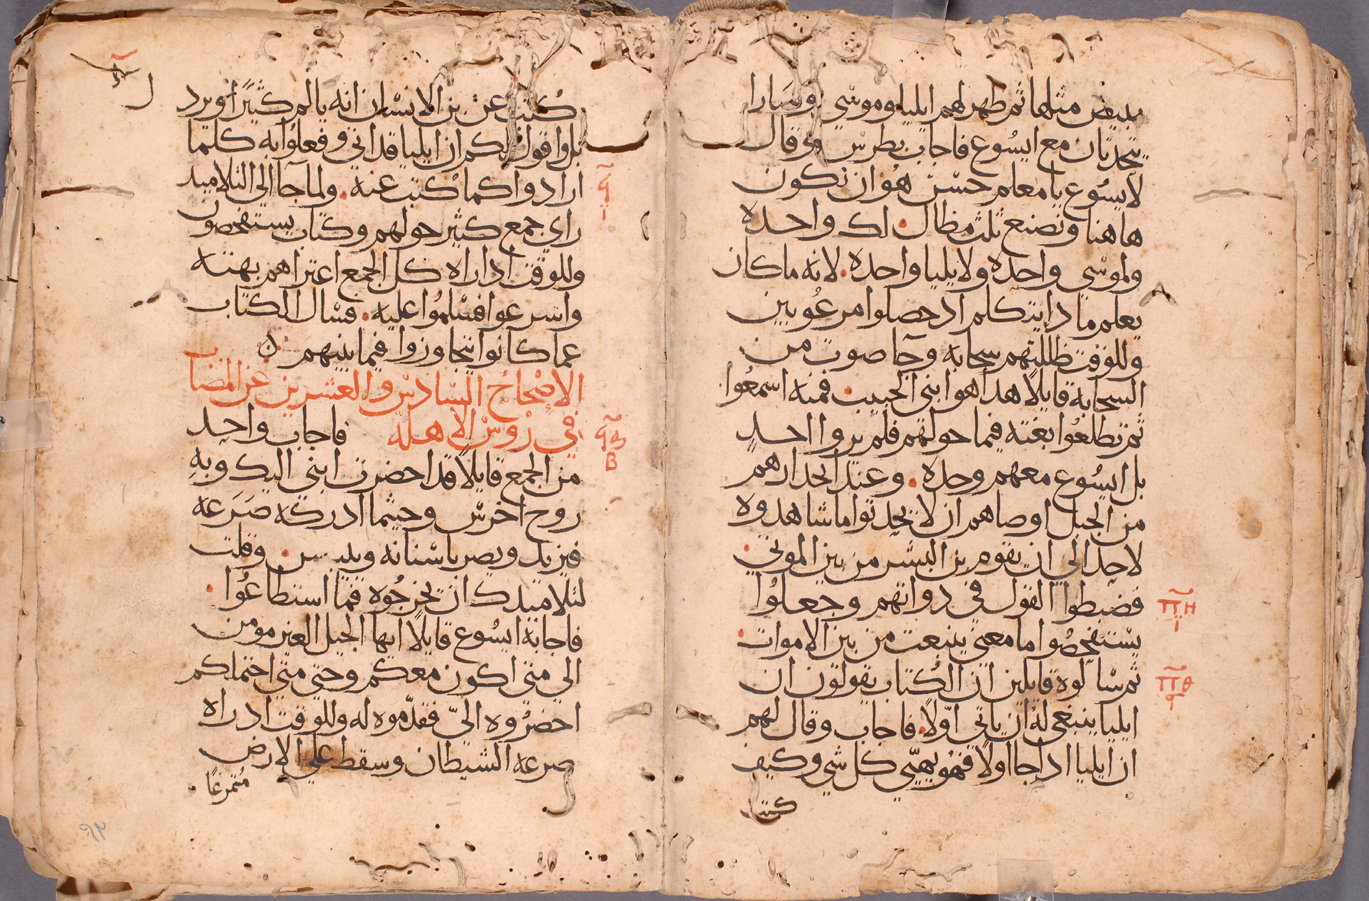 يبيض مثلها ثم ظهر لهم ايليا وموسى وصارا
يتحدثان مع ايسُوع فاجاب بطرس وقال
لايسُوع يا معلم حسَن هُو ان نكون
هاهنا ونصنع ثلث مظال. لك واحده
ولموسى واحده ولايليا واحده. لانه ما كان
يعلم ماذا يتكلم اذ حصلوا مرعُوبين
وللوقت ظللتهم سحابه وجا صوت من
السحابه قايلًا هذا هو ابني الحبيب فمنه اسمعُوا
ثم تطلعُوا بغته فيما حولهم فلم يروا احد
بل ايسُوع معهم وحده. وعند انحدارهم
من الجبل اوصاهم ان لا يحدثوا ما شاهدوه
لاحد الى ان يقوم بن البشر من بين الموتى
فضبطوا القول في ذواتهم وجعلُوا
يستفحصُوا ما معنى ينبعث من بين الاموات
ثم سالوه قايلين ان الكُتاب يقولون ان
ايليا ينبغي له ان ياتي اولًا. فاجاب وقال لهم
ان ايليا اذا جا اولًا فهُو يهيّى كل شي وكيف
كتب
ⲡ̅ⲏ̅
ⲡ̅ⲑ̅
كُتب عن بن الانسَان انه يالم كثيرًا ويرذ
بل واقول لكم ان ايليا قد اتى وفعلوا به كلما
ارادوا كما كُتب عنه. ولما جا الى التلاميذ
راى جمع كثير حولهم وكتاب يستفحصُون
وللوقت اذ راه كل الجمع اعتراهم بهته
واسرعوا فسَلمُوا عليه. فسَال الكتاب
عما كانوا يتجاوزوا فيما بينهم
الاصْحَاحُ السّادسْ والعشرين عن المضاب
في روسْ الاهله فاجاب واحد
من الجمع قايلًا قد احضرت ابني اليك وبه
روح اخرسْ وحيثما ادركه صَرَعه
فيزبد ويصر باسْنانه وييبس. وقلت
لتلاميذك ان يخرجُوه فما استطاعُوا.
فاجابه ايسُوع قايلًا ايها الجيل الغير مومن
الى متى اكون معكم وحتى متى احتملكم
احضرُوه اليّ فقدّموه له وللوقت اذ راه
صرعه الشيطان وسقط على الارض
مُتمرغًا
٩٣